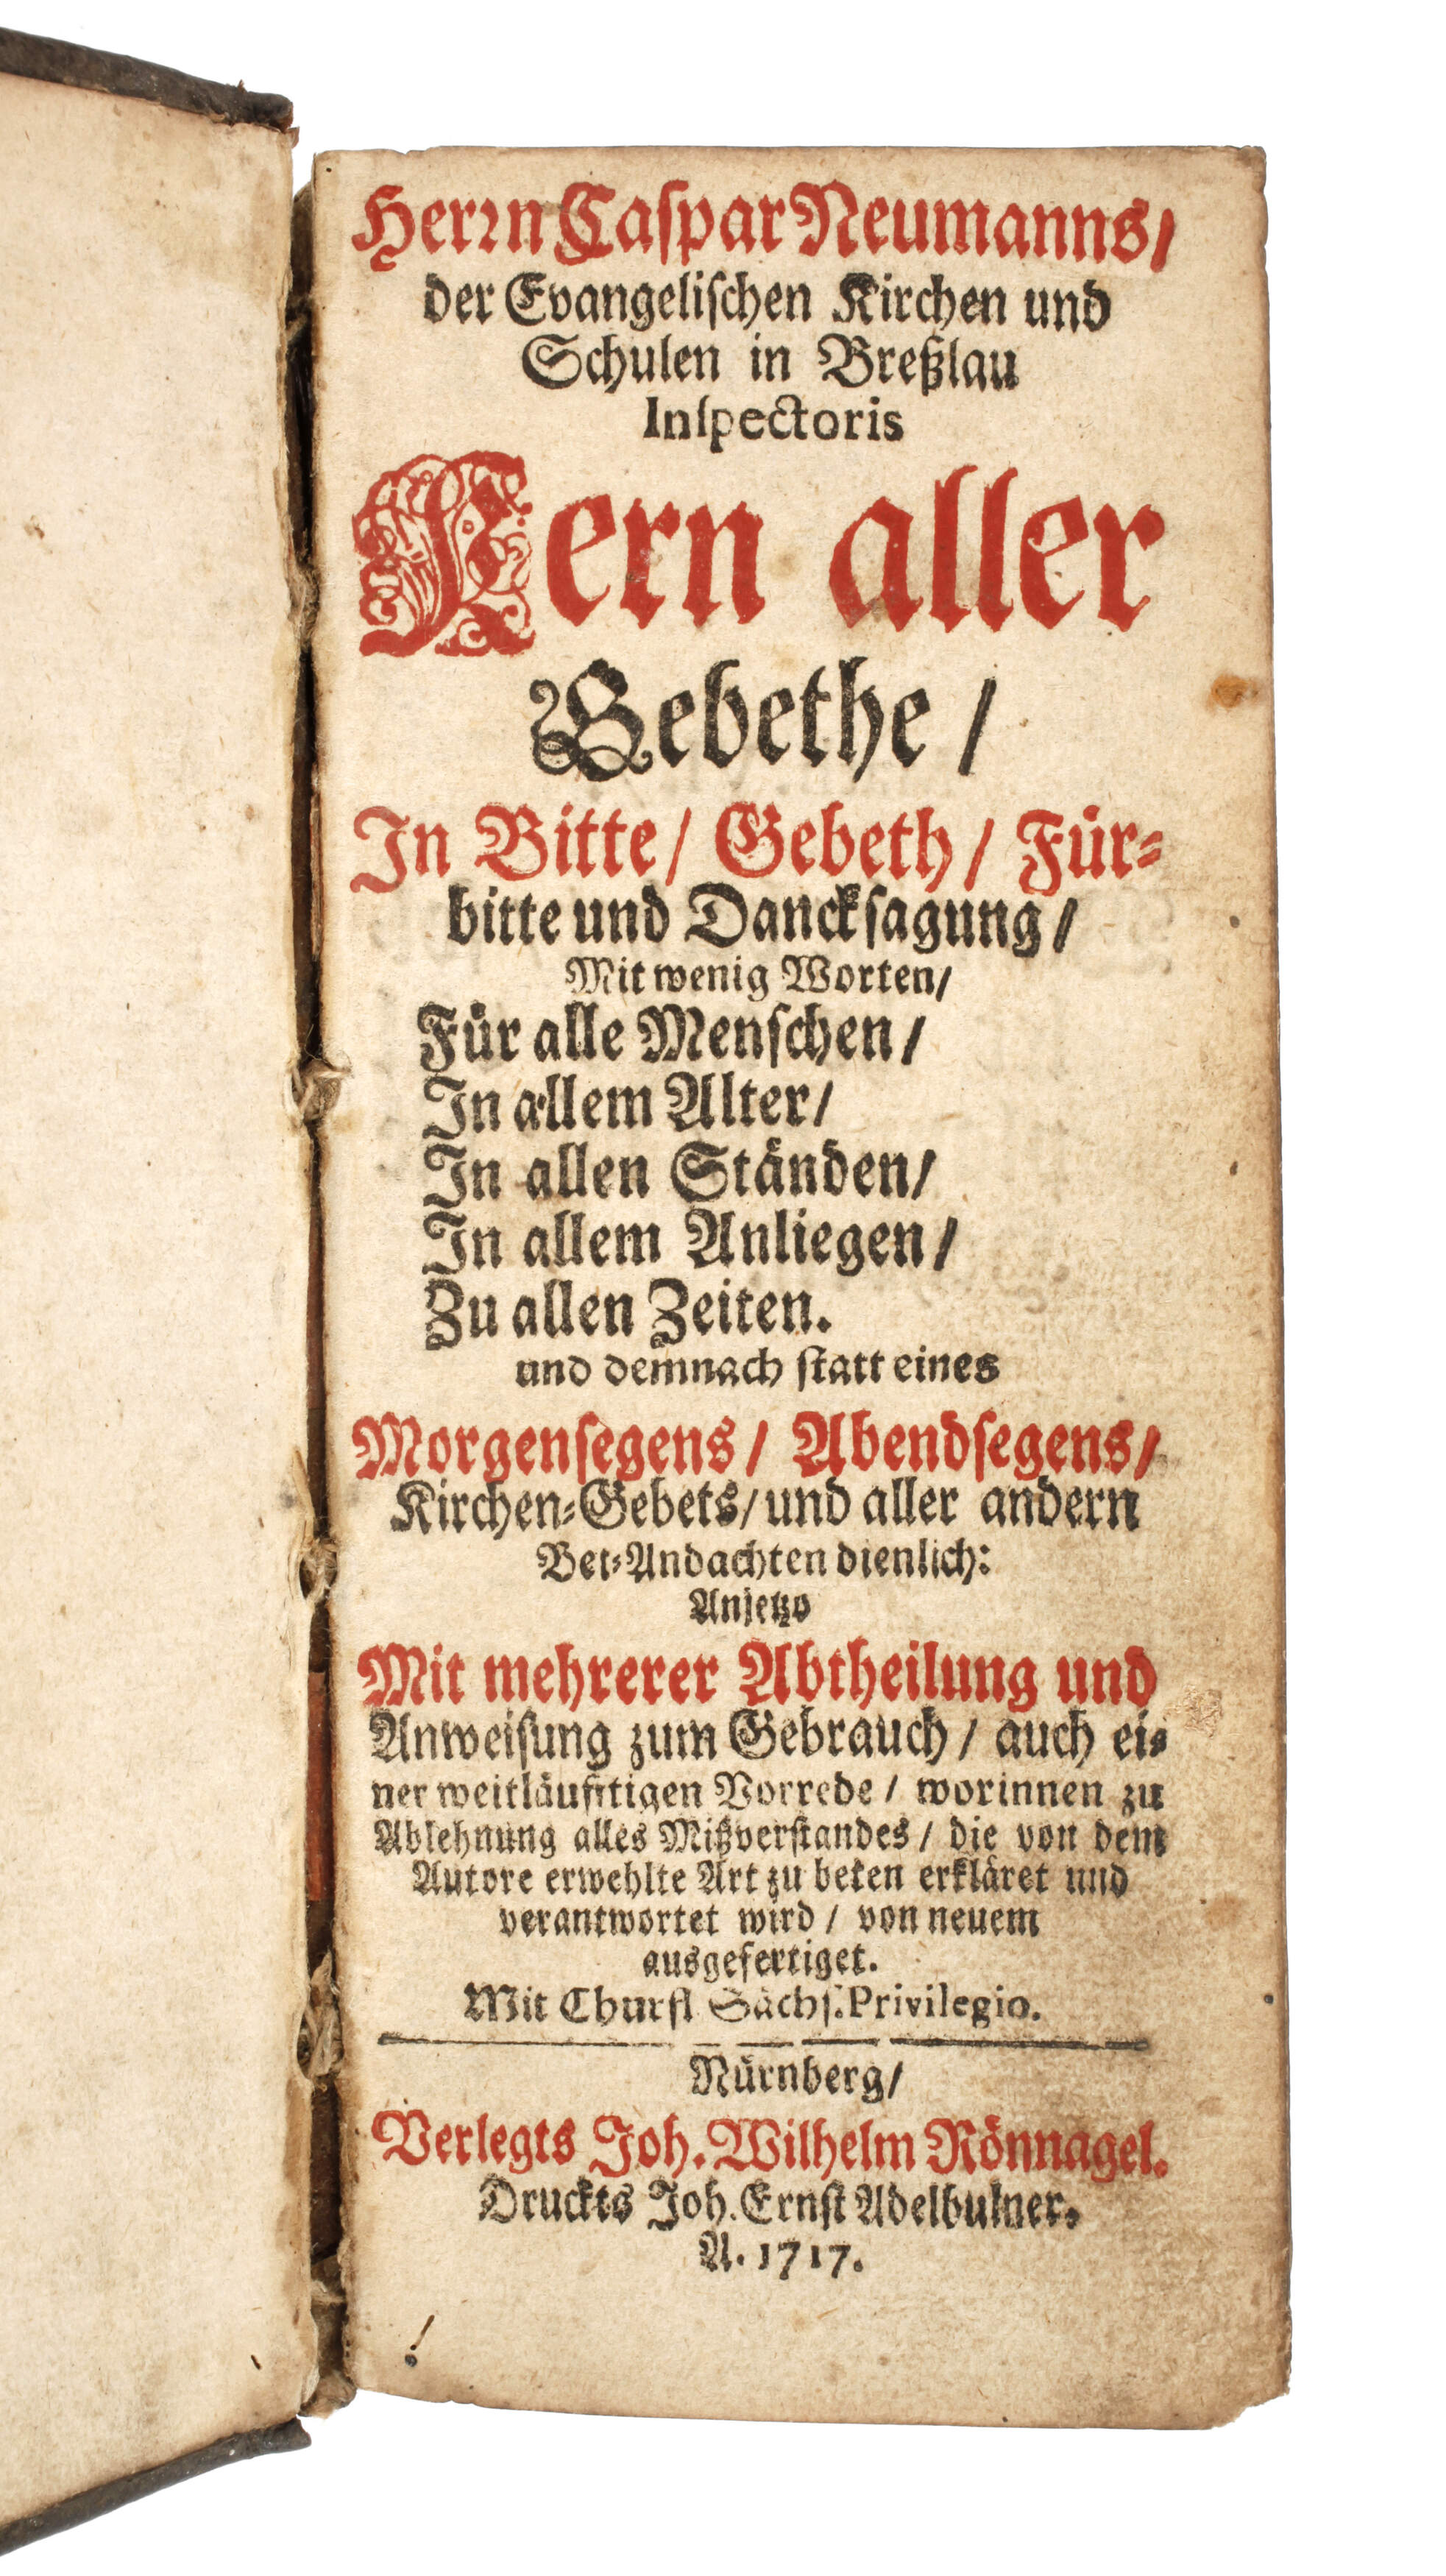 Herrn Caspar Neumanns/
der Evangelischen Kirchen und
Schulen in Breßlau
Inspectoris
Kern aller
Gebethe/
In Bitte/ Gebeth/ Für-
bitte und Dancksagung/
Mit wenig Worten/
Für alle Menschen/
In allem Alter/
In allen Ständen/
In allem Anliegen/
Zu allen Zeiten.
und demnach statt eines
Morgensegens/ Abendsegens/
Kirchen-Gebets/ und aller andern
Bet-Andachten dienlich:
Anjetzo
Mit mehrerer Abtheilung und
Anweisung zum Gebrauch/ auch ei-
ner weitläufftigen Vorrede/ worinnen zu
Ablehnung alles Mißverstandes/ die von dem
Autore erwehlte Art zu beten erkläret und
verantwortet wird/ von neuem
ausgefertiget.
Mit Churfl Sächs. Privilegio.
Nürnberg/
Verlegts Joh. Wilhelm Rönnagel.
Druckts Joh. Ernst Adelbulner.
A. 1717.